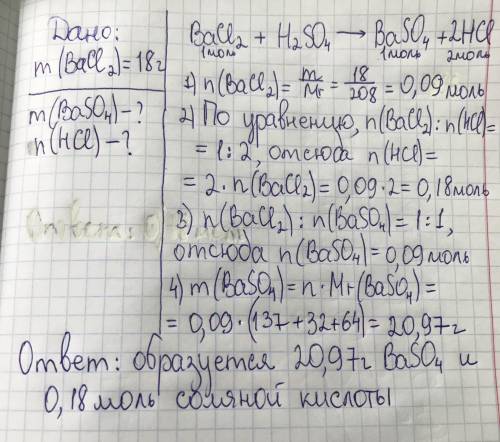 Дано:
m(BaCl₂)=18г
m(BaSO₄)-?
n(HCl)-?
BaCl₂ + H₂SO₄ → BaSO₄ + 2HCl
1моль 1моль 2моль
1) n(BaCl₂)= m/Mr = 18/208 = 0,09 моль
2) По уравнению, n(BaCl₂):n(HCl)=
= 1:2, отсюда n(HCl)=
= 2·n(BaCl₂)=0,09·2=0,18моль
3) n(BaCl₂):n(BaSO₄)=1:1,
отсюда n(BaSO₄)=0,09моль
4) m(BaSO₄)=n·Mr(BaSO₄)=
= 0,09·(137+32+64)=20,97г
Ответ: образуется 20,97г BaSO₄ и
0,18моль соляной кислоты